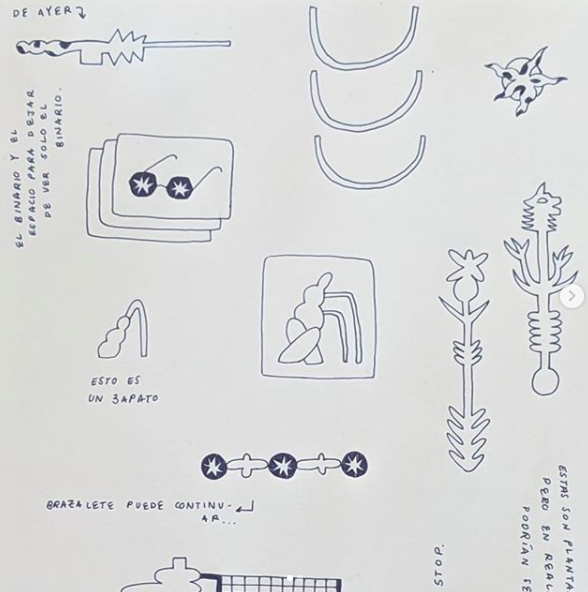 DE AYER
EL BINARIO Y EL
ESPACIO PARA DEJAR
DE VER SOLO EL
BINARIO.
ESTO ES
UN ZAPATO
BRAZALETE PUEDE CONTINU-
AR...
STOP.
ESTAS SON PLANTA
PERO EN REAL
PODRÍAN SE